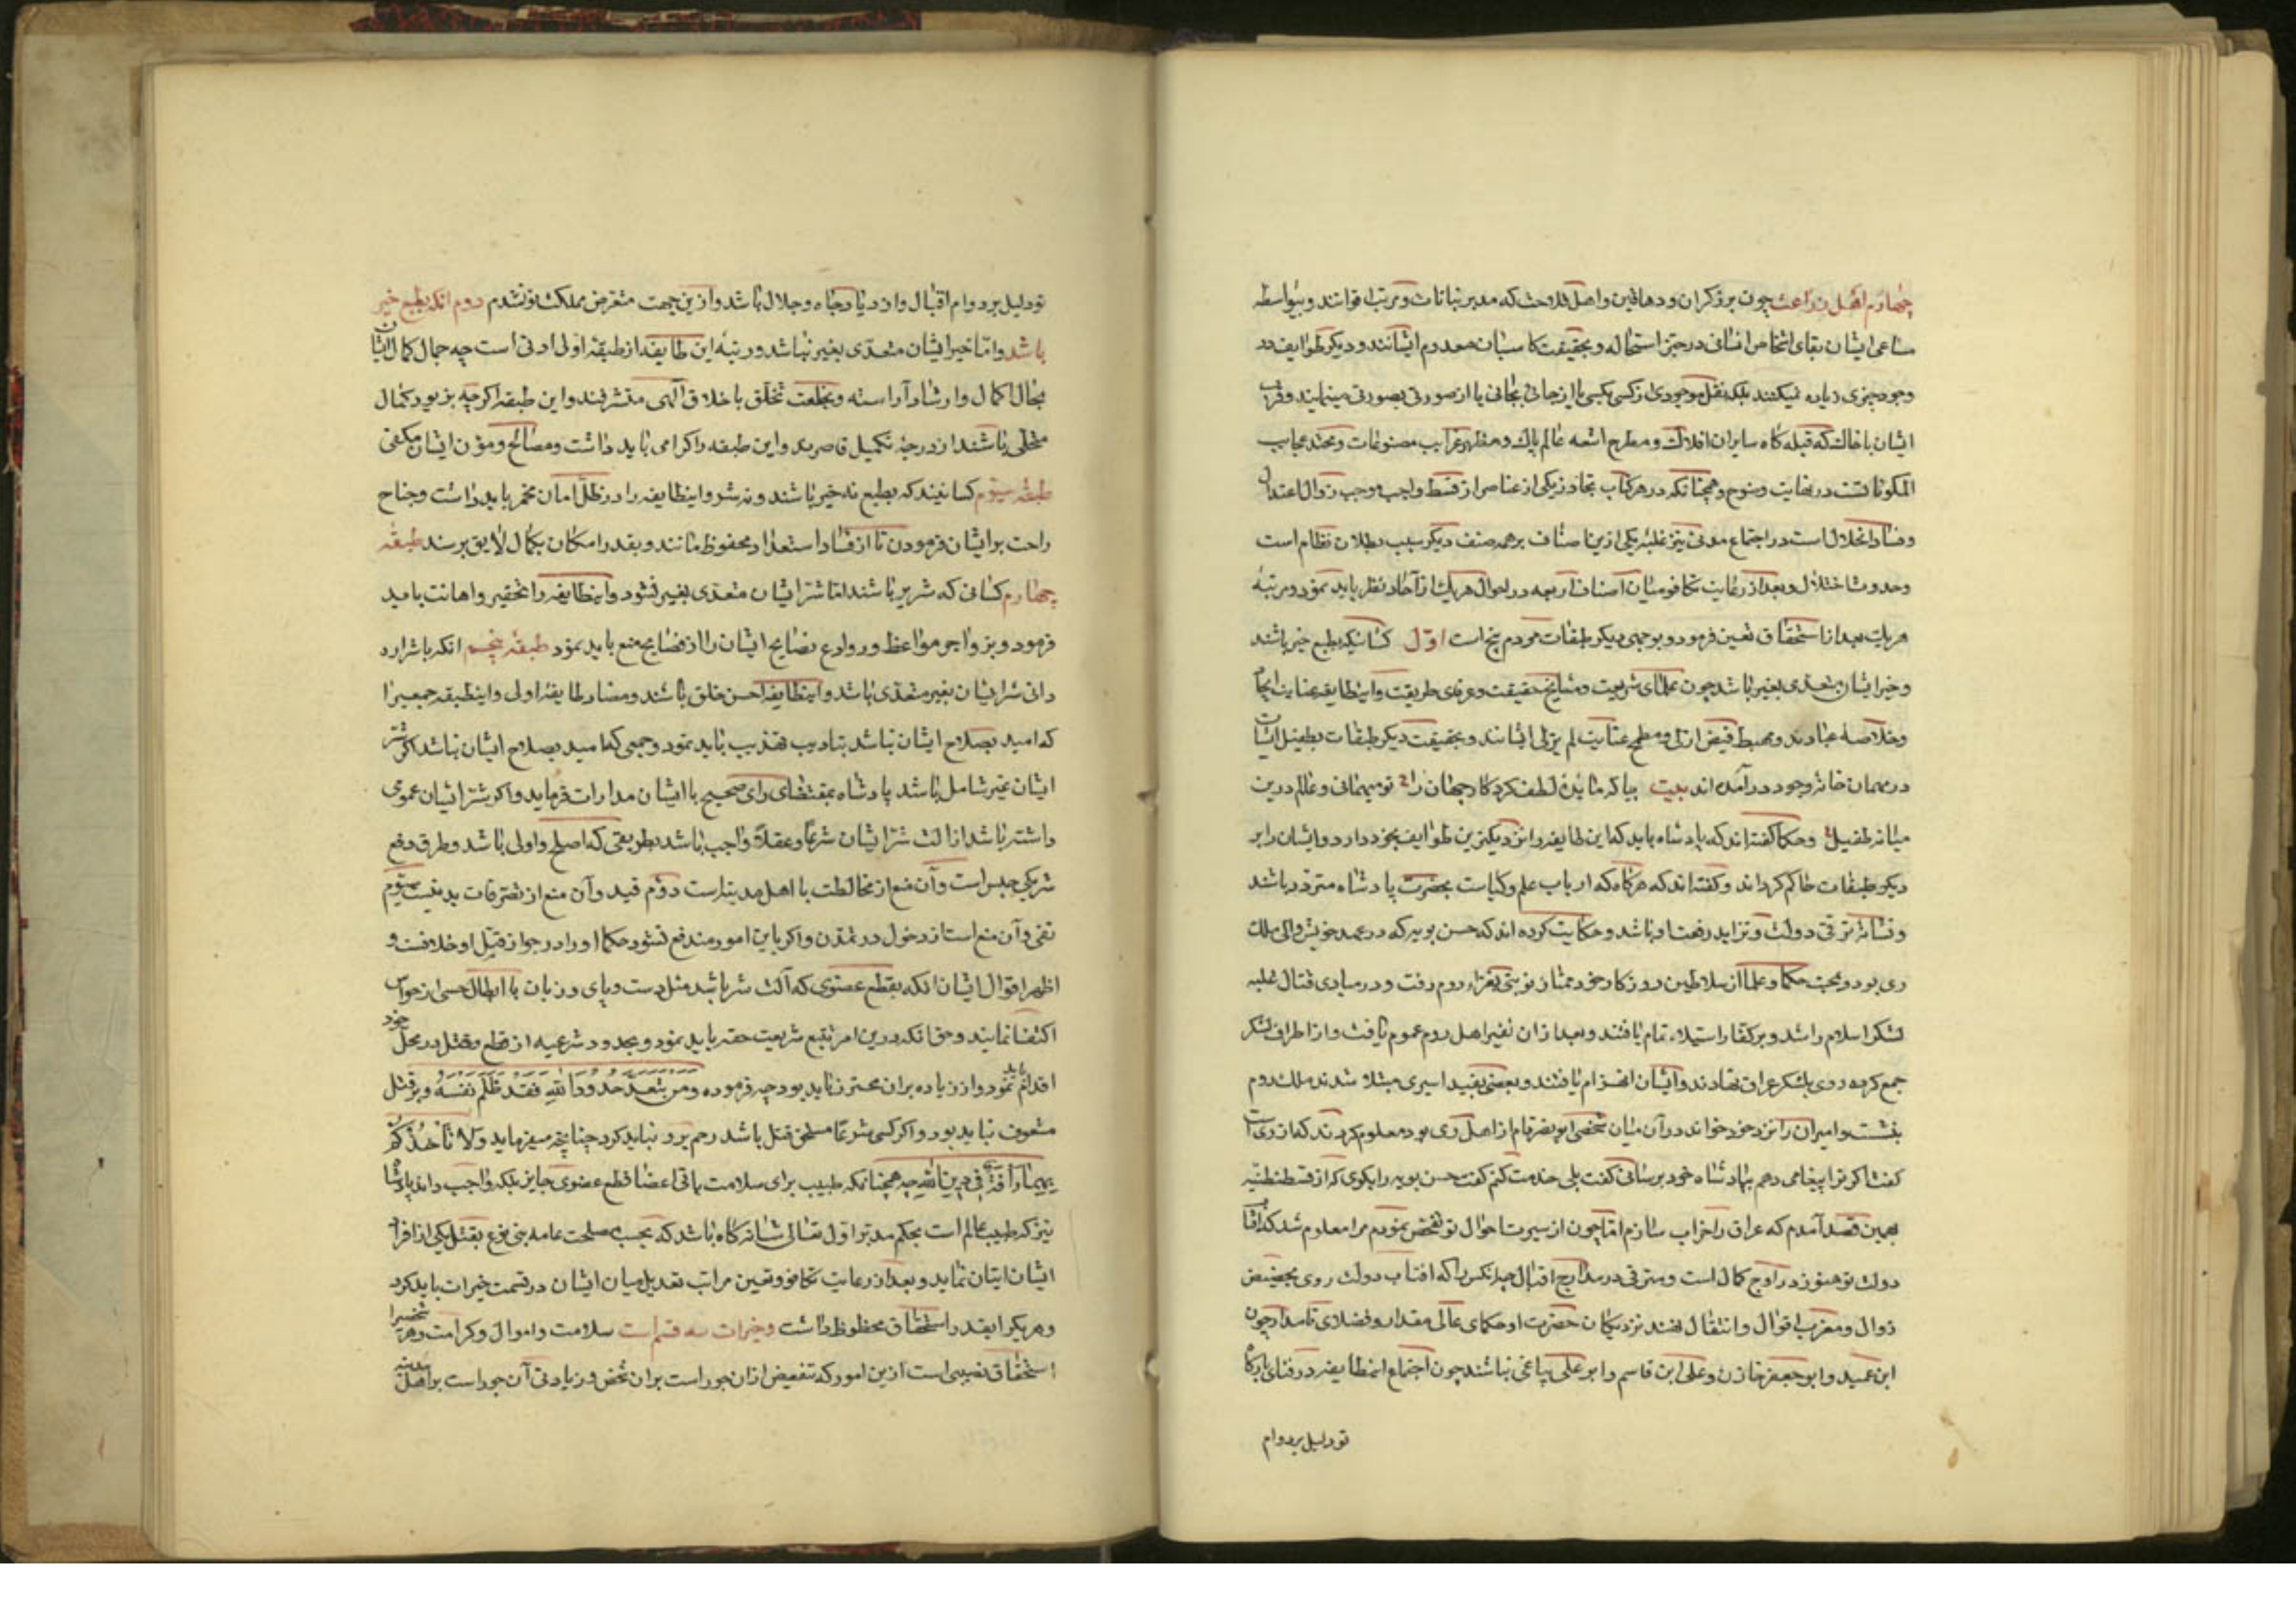 چهارم اهل زراعت چون برزکران و دهاقین و اهل فلاحت که مدبر نباتات و مرتب اقواتند و بیواسطه
مساعی ایشان بقای اشخاص انسانی در حیز استحاله و بحقیقت کاسبان معدوم ایشانند و دیکر طوایف در
وجود چیزی زیاده نمیکنند بلکه نقل موجودی از کسی بکسی یا از جائی بجائی یا از صورتی بصورتی مینمایند و قرب
ایشان با خاک که قبله کاه سایران افلاک و مطرح اشعه عالم پاک و مظهر غرایب مصنوعات و محتد عجایب
المکوناتست در نهایت وضوح و همچنانکه در مرکبات تجاوز یکی از عناصر از قسط واجب موجب زوال اعتدال
و فساد انحلال است در اجتماع مدنی نیز غلبه یکی ازین اصناف بر همه صنف دیکر سبب بطلان نظام است
و حدوث اختلال و بعد از رعایت تکافو میان اصناف اربعه در احوال هریک از آحاد نظر باید نمود و مرتبهٔ
هریک بعد از استحقاق تعیین فرمود و بوجهی دیکر طبقات مردم پنج است اوّل کسانیکه بطبع خیر باشند
و خیر ایشان متعدی بغیر باشد چون علمای شریعت و مشایخ حقیقت و عرفای طریقت و اینطایفه غایت ایجاد
و خلاصهٔ عبادند و مهبط فیض ازلی و مطمح عنایت لم یزلی ایشانند و بحقیقت دیکر طبقات بطفیل ایشان
در مهمان خانهٔ وجود درآمده اند بیت بیا که مایدهٔ لطف کردکار جهان را تو میهمانی و عالم درین
میانه طفیل و حکما کفته اند که پادشاه باید که این طایفه را نزدیکترین طوایف بخود دارد و ایشان را بر
دیکر طبقات حاکم کرداند و کفته اند که هرکاه که ارباب علم و کیاست بحضرت پادشاه متردد باشند
و نشانهٔ ترقی دولت و تزاید رفعت او باشد و حکایت کرده اند که حسن بویه که در عهد خویش والی ملک
ری بود و بمحبت حکما و علما از سلاطین روزکار خود ممتاز نوبتی بغزاء روم رفت و در مبادی قتال غلبه
لشکر اسلام را شد و بر کفار استیلاء تمام یافتند و بعد از ان نفیر اهل روم عموم یافت و از اطراف لشکر
جمع کرده روی بلشکر عراق نهادند و ایشان انهزام یافتند و بعضی بقید اسیری مبتلا شدند ملک روم
بنشست و اسیران را نزد خود خواند در آن میان شخصی ابو نصر نام از اهل ری بود معلوم کردند که از ری است
کفت اکر ترا پیغامی دهم بپادشاه خود برسانی کفت بلی خدمت کنم کفت حسن بویه را بکوی که از قسطنطنیّه
بهمین قصد آمدم که عراق را خراب سازم اما چون از سیرت احوال تو تفحص نمودم مرا معلوم شد که آفتاب
دولت تو هنوز در اوج کمال است و مترقی در مدارج اقبال چه انکس را که افتاب دولت روی بحضیض
زوال و مغرب اقوال و انتقال نهند نزدیکان حضرت او حکمای عالی مقدار و فضلای نامدار چون
ابن عمید و ابو جعفر خازن و علی ابن قاسم و ابو علی بیاغی نباشند چون اجتماع اینطایفه در فنای بارکاه
تو دلیل بر دوام
تو دلیل بر دوام اقبال و ازدیاد جاه و جلال باشد و ازین جهت متعرض مملکت تو نشدم دوم انکه بطبع خیر
باشد و امّا خیر ایشان متعدّی بغیر نباشد و رتبهٔ این طایفه از طبقهٔ اولی ادنی است چه جمال کمال ایشان
بخال اکمال و ارشاد آراسته و بخلعت تخلّق باخلاق الهی متشرفند و این طبقه اکرچه بزیور کمال
متحلّی باشند از درجهٔ تکمیل قاصرند و این طبقه را کرامی باید داشت و مصالح و مؤن ایشان مکفی
طبقه سیوم کسانیند که بطبع نه خیر باشند و نه شر و اینطایفه را در ظلّ امان مخمر باید داشت و جناح
راحت بر ایشان فرمودن تا از فساد استعداد محفوظ مانند و بقدر امکان بکمال لایق برسند طبقه
چهارم کسانی که شریر باشند اما شر ایشان متعدی بغیر نشود و اینطایفه را تحقیر و اهانت باید
فرمود و بزواجر مواعظ و روادع نصایح ایشان را از فضایح منع باید نمود طبقه پنجم انکه باشرارد
دانی شر ایشان بغیر متعدّی باشد و اینطایفه احسن خلق باشند و مضاد طایفهٔ اولی و اینطبقه جمعیرا
که امید بصلاح ایشان باشد بتادیب تهذیب باید نمود و جمعی که امید بصلاح ایشان نباشد اکر شر
ایشان غیر شامل باشد پادشاه بمقتضای رای صحیح با ایشان مدارات فرماید و اکر شر ایشان عمومی
داشته باشد ازالت شر ایشان شرعًا و عقلًا واجب باشد بطریقی که اصلح و اولی باشد و طرق دفع
شر یکی حبس است و آن منع از مخالطت با اهل مدینه است دوّم قید و آن منع از تصرفات بدنیست سیوم
نفی و آن منع است از دخول در تمدّن و اکر باین امور مندفع نشود حکما او را در جواز قتل او خلافست و
اظهر اقوال ایشان انکه بقطع عضوی که آلت شر باشد مثل دست و پای و زبان یا ابطال حسی از حواس
اکتفا نمایند و حق انکه درین امر تتبع شریعت حقه باید نمود و بحدود شرعیه از قطع و قتل در محل خود
اقدام باید نمود و از زیاده بران محترز باید بود چه فرموده وَمَن یَتَعَدَّ حُدُودَ اللهِ فَقَد ظَلَمَ نَفسَهُ و بر قتل
مشعوف نباید بود و اکر کسی شرعًا مستحق قتل باشد رحم برو نباید کرد چنانچه میفرماید وَلَا تَأخُذکُم
بِهِمَا رَأفَةٌ فِی دِینِ اللهِ چه همچنانکه طبیب برای سلامت باقی اعضا قطع عضوی جایز بلکه واجب داند پادشاه
نیز که طبیب عالم است بحکم مدبر اوّل تعالی شانه کاه باشد که بحسب مصلحت عامه بنی نوع بقتل یکی از افراد
ایشان اتیان نماید و بعد از رعایت تکافو و تعیین مراتب تعدیل میان ایشان در قسمت خیرات باید کرد
و هر یکرا بقدر استحقاق محظوظ داشت و خیرات سه قسم است سلامت و اموال و کرامت و هر شخصیرا
استحقاق نصیبی است ازین امور که تنقیص ازان جور است بران شخص و زیادتی آن جور است بر اهل مدینه